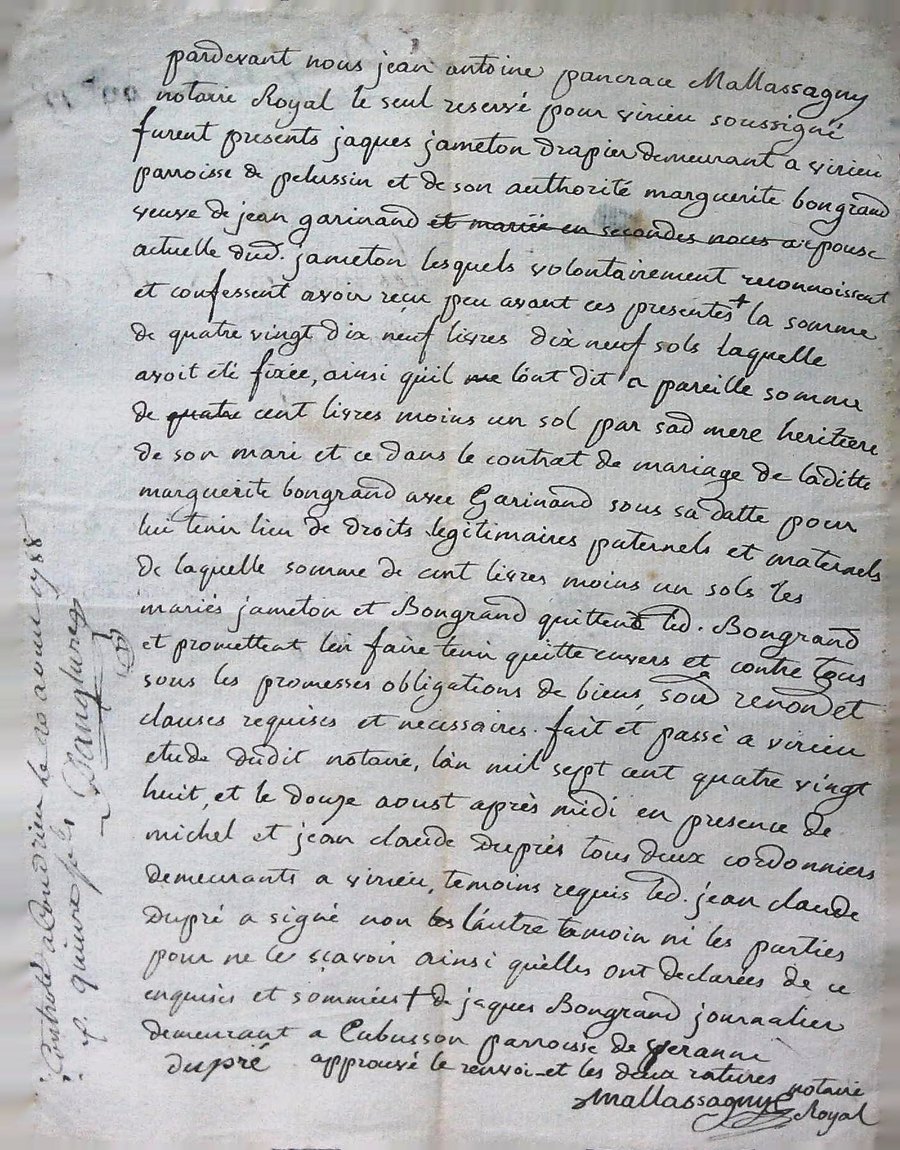 pardevant nous jean antoine pancrace Mallassagny
notaire Royal le seul reservé pour virieu soussigné
furent presents jaques jameton drapier demeurant a virieu
parroisse de pelussin et de son authorité marguerite bongrand
veuve de jean garinand et mariée en secondes nous a epouse
actuelle dud. jameton lesquels volontairement reconnoissent
et confessent avoir reçu peu avant ces presentes + la somme
de quatre vingt dix neuf livres dix neuf sols laquelle
avoit eté fixée, ainsi qu'il me l'ont dit a pareille somme
de quatre cent livres moins un sol par sad mere heritiere
de son mari et ce dans le contrat de mariage de laditte
marguerite bongrand avec Garinand sous sa datte pour
lui tenir lieu de droits legitimaires paternels et maternels
de laquelle somme de cent livres moins un sols les
mariés jameton et Bongrand quittent led. Bongrand
et promettent l'en faire tenir quitte envers et contre tous
sous les promesses obligations de biens, soud renond et
clauses requises et necessaires. fait et passé a virieu
etude dudit notaire, l'an mil sept cent quatre vingt
huit, et le douze aoust après midi en presence de
michel et jean claude Duprés tous deux cordonniers
demeurants a virieu, temoins requis led. jean claude
Dupré a signé non les l'autre temoin ni les parties
pour ne le sçavoir ainsi qu'elles ont declarées de ce
enquises et sommées + de jaques Bongrand journalier
demeurant a Cubusson parroisse de veranne
dupré approuvé le renvoi et les deux ratures
Mallassagny notaire
Royal
Controlé a Condrieu le 20 aoust 1788
r. quinze sols Langlure